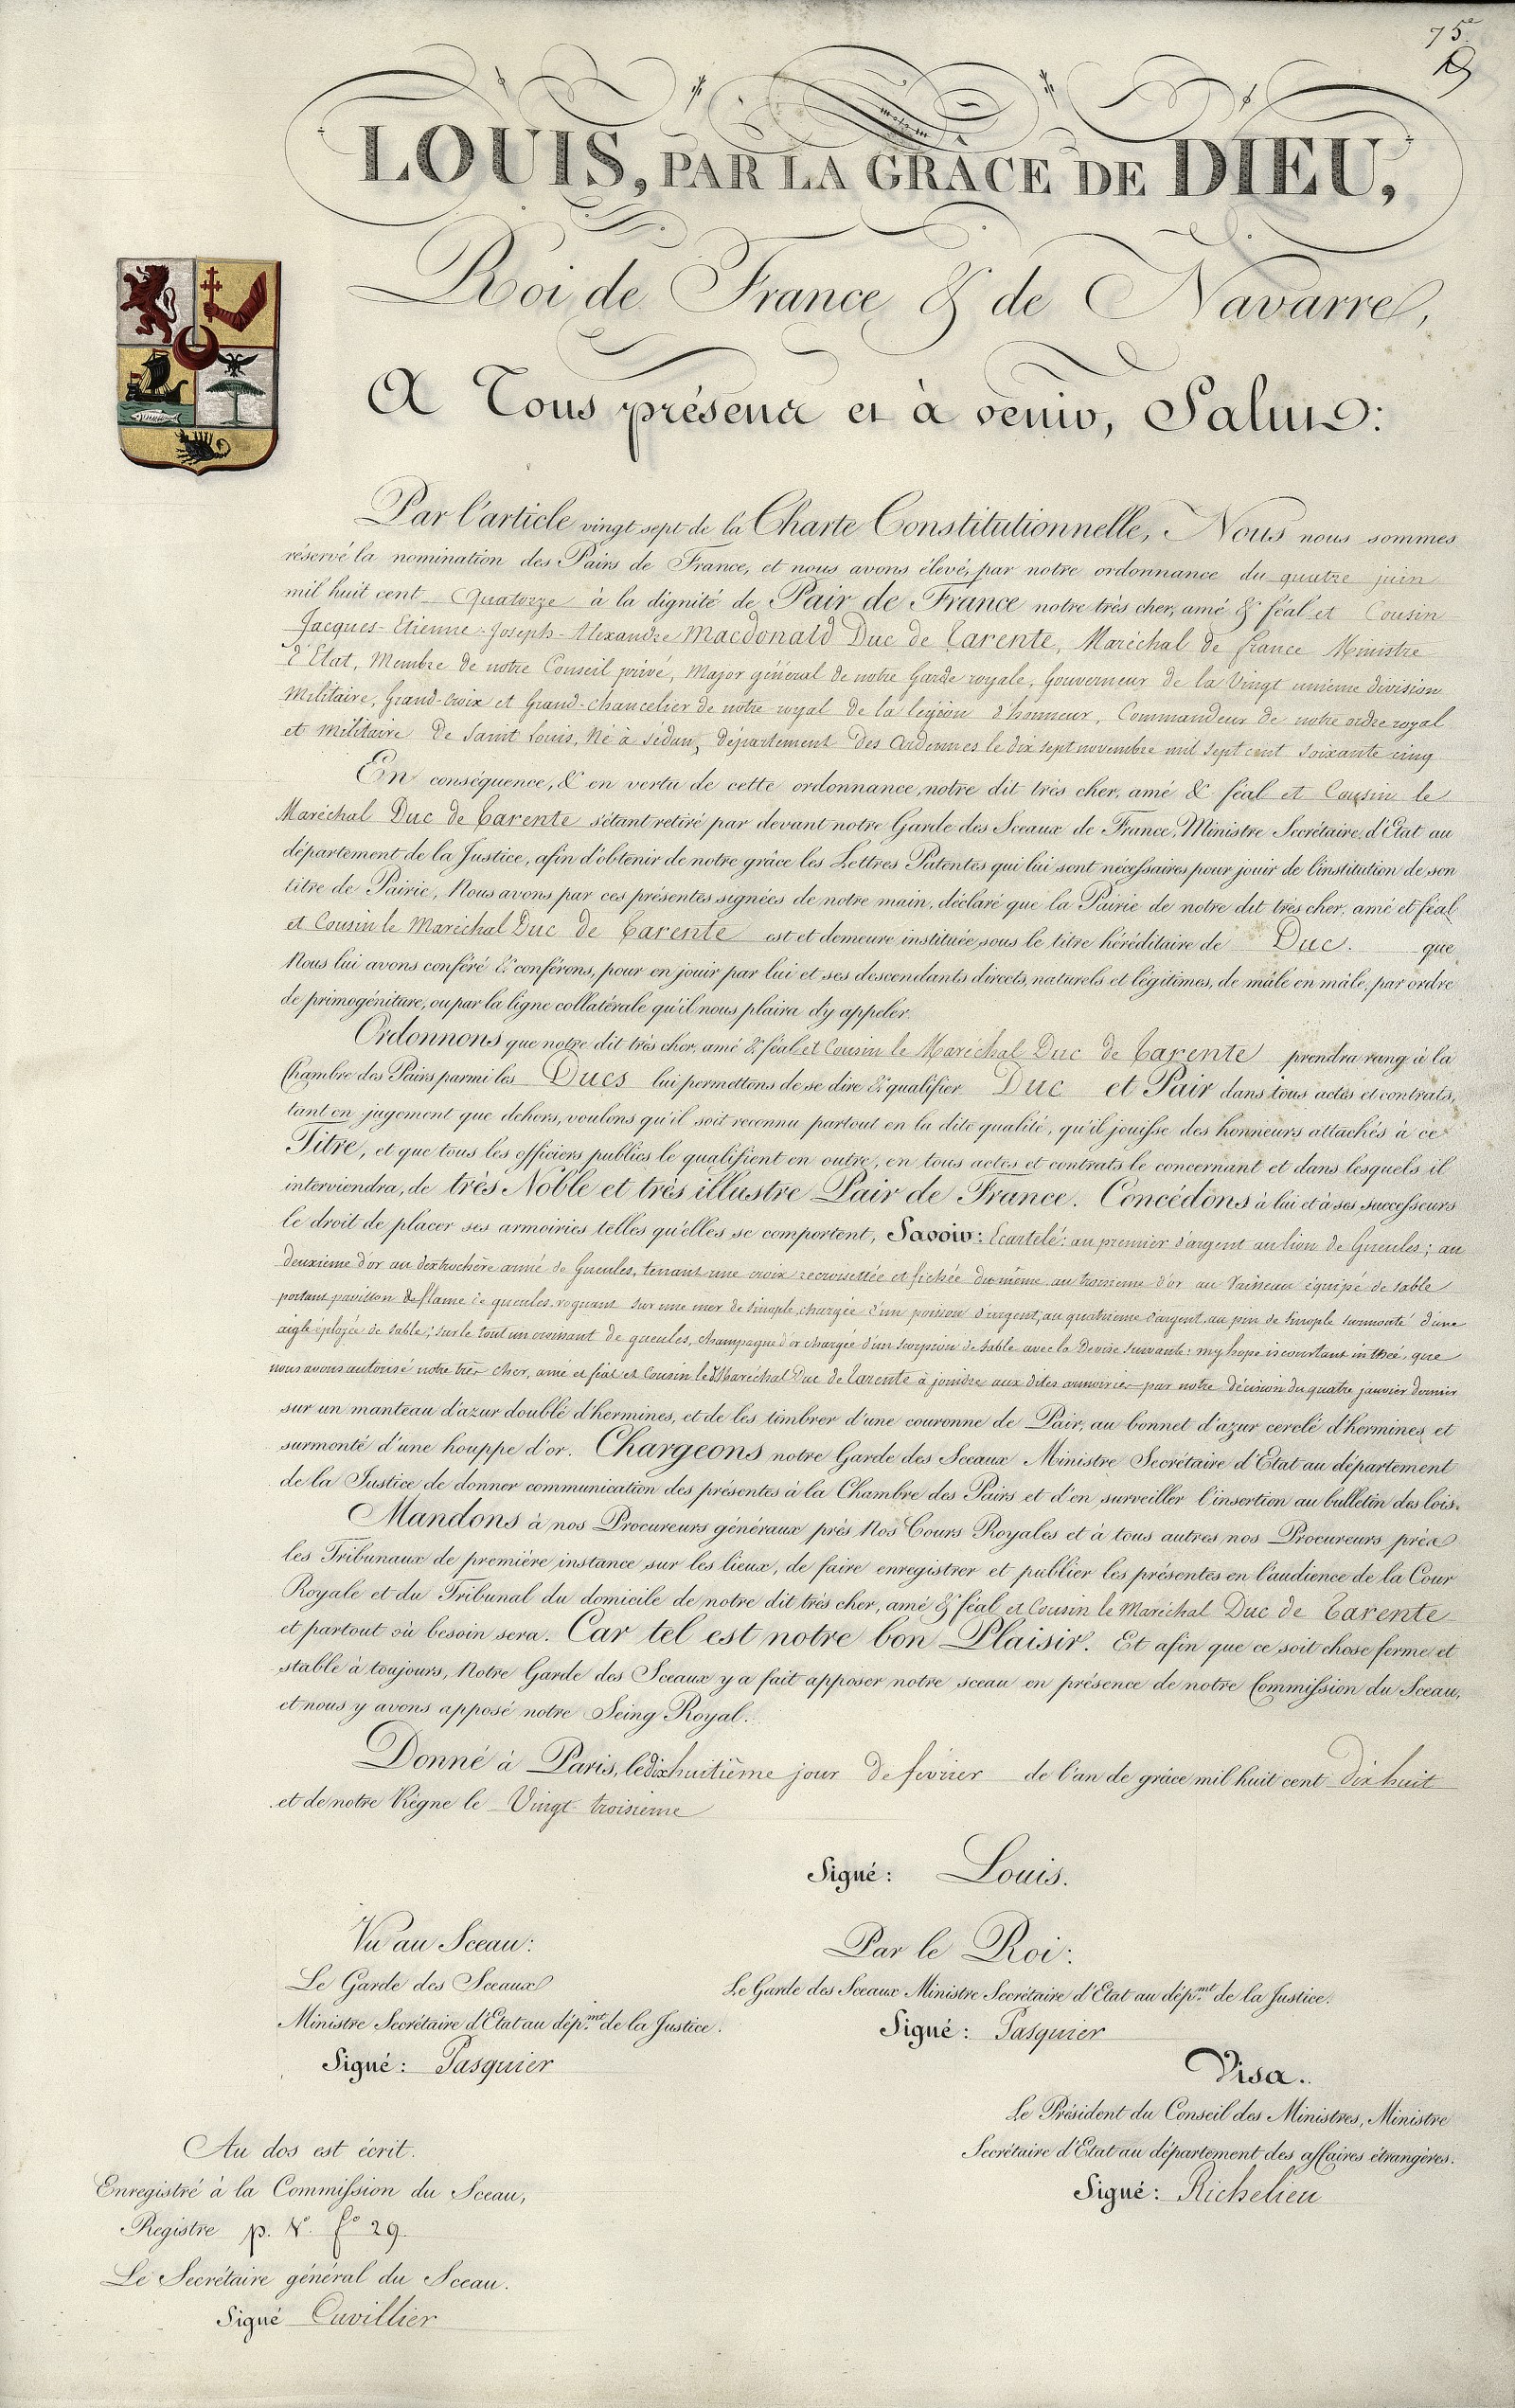 75e
LOUIS, PAR LA GRÂCE DE DIEU,
Roi de France & de Navarre,
A Tous présens et à venir, Salut:
Par l'article vingt sept de la Charte Constitutionnelle, Nous nous sommes
réservé la nomination des Pairs de France, et nous avons élevé, par notre ordonnance du quatre juin
mil huit cent Quatorze à la dignité de Pair de France notre très cher, amé & féal et Cousin
Jacques-Etienne-Joseph-Alexandre Macdonald Duc de Tarente, Maréchal de france Ministre
d'Etat, Membre de notre Conseil privé, Major général de notre Garde royale, Gouverneur de la Vingt unieme division
Militaire, Grand-croix et Grand-chancelier de notre royal de la legion d'honneur, Commandeur de notre ordre royal
et militaire de Saint Louis, Né à Sédan, département des Ardennes le dix sept novembre mil sept cent soixante cinq
En conséquence, & en vertu de cette ordonnance, notre dit très cher, amé & féal et Cousin le
Maréchal Duc de Tarente s'étant retiré par devant notre Garde des Sceaux de France, Ministre Secrétaire d'Etat au
département de la Justice, afin d'obtenir de notre grâce les Lettres Patentes qui lui sont nécessaires pour jouir de l'institution de son
titre de Pairie, Nous avons par ces présentes signées de notre main, déclaré que la Pairie de notre dit très cher, amé et féal
et Cousin le Maréchal Duc de Tarente est et demeure instituée sous le titre héréditaire de Duc. que
Nous lui avons conféré & conférons, pour en jouir par lui et ses descendants directs, naturels et légitimes, de mâle en mâle, par ordre
de primogéniture, ou par la ligne collatérale qu'il nous plaira d'y appeler.
Ordonnons que notre dit très cher, amé & féal et Cousin le Maréchal Duc de Tarente prendra rang à la
Chambre des Pairs parmi les Ducs lui permettons de se dire & qualifier Duc et Pair dans tous actes et contrats,
tant en jugement que dehors, voulons qu'il soit reconnu partout en la dite qualité, qu'il jouisse des honneurs attachés à ce
Titre, et que tous les officiers publics le qualifient en outre, en tous actes et contrats le concernant et dans lesquels il
interviendra, de très Noble et très illustre Pair de France. Concédons à lui et à ses successeurs
le droit de placer ses armoiries telles qu'elles se comportent, Savoir: Ecartelé: au premier d'argent au lion de Gueules; au
deuxieme d'or au dextrochère armé de Gueules, tenant une croix recroisettée et fichée du même au troisieme d'or au Vaisseau équipé de sable
portant pavillon & flame de gueules, voguant sur une mer de sinople, chargée d'un poisson d'argent; au quatrieme d'argent, au pin de Sinople surmonté d'une
aigle éployée de sable; sur le tout un croissant de gueules, champagne d'or chargée d'un scorpion de sable avec la Devise suivante: my hope is constant in thee, que
nous avons autorisé notre très cher, amé et féal et Cousin le Maréchal Duc de Tarente à joindre aux dites armoiries par notre décision du quatre janvier dernier
sur un manteau d'azur doublé d'hermines, et de les timbrer d'une couronne de Pair, au bonnet d'azur cerclé d'hermines et
surmonté d'une houppe d'or. Chargeons notre Garde des Sceaux Ministre Secrétaire d'Etat au département
de la Justice de donner communication des présentes à la Chambre des Pairs et d'en surveiller l'insertion au bulletin des lois.
Mandons à nos Procureurs généraux près Nos Cours Royales et à tous autres nos Procureurs près
les Tribunaux de première instance sur les lieux, de faire enregistrer et publier les présentes en l'audience de la Cour
Royale et du Tribunal du domicile de notre dit très cher, amé & féal et Cousin le Maréchal Duc de Tarente
et partout où besoin sera. Car tel est notre bon Plaisir. Et afin que ce soit chose ferme et
stable à toujours, Notre Garde des Sceaux y a fait apposer notre sceau en présence de notre Commission du Sceau,
et nous y avons apposé notre Seing Royal.
Donné à Paris, le dix huitième jour de fevrier de l'an de grâce mil huit cent dix huit
et de notre Règne le Vingt troisieme
Signé: Louis.
Vu au Sceau:
Le Garde des Sceaux
Ministre Secrétaire d'Etat au dép.mt de la Justice.
Signé: Pasquier
Par le Roi:
Le Garde des Sceaux Ministre Secrétaire d'Etat au dép.mt de la Justice.
Signé: Pasquier
Visa.
Le Président du Conseil des Ministres, Ministre
Secrétaire d'Etat au département des affaires étrangères.
Signé: Richelieu
Au dos est écrit.
Enregistré à la Commission du Sceau,
Registre p. No fo 29
Le Secrétaire général du Sceau.
Signé Cuvillier